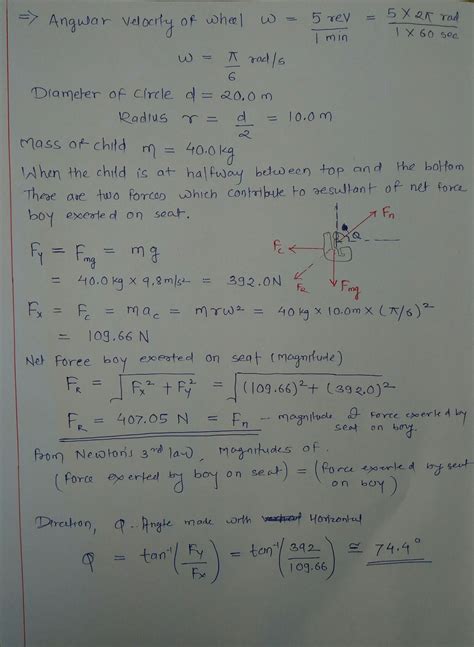 ⇒ Angular Velocity of wheel ω = 5 rev / 1 min = 5 × 2π rad / 1 × 60 sec
ω = π/6 rad/s
Diameter of Circle d = 20.0 m
Radius r = d/2 = 10.0 m
Mass of child m = 40.0 kg
When the child is at halfway between top and the bottom
There are two forces which contribute to resultant of net force
boy exerted on seat.
Fn
Q
Fc
FR
Fmg
Fy = Fmg = mg
= 40.0 kg × 9.8 m/s² = 392.0 N
Fx = Fc = mac = mrω² = 40 kg × 10.0 m × (π/6)²
= 109.66 N
Net Force boy exerted on seat (magnitude)
FR = √(Fx² + Fy²) = √((109.66)² + (392.0)²)
FR = 407.05 N = Fn -- magnitude of force exerted by
seat on boy.
From Newton's 3rd law, Magnitudes of.
(force exerted by boy on seat) = (force exerted by seat
on boy)
Direction, Q .. Angle made with Horizontal
Q = tan⁻¹(Fy/Fx) = tan⁻¹(392/109.66) ≅ 74.4°